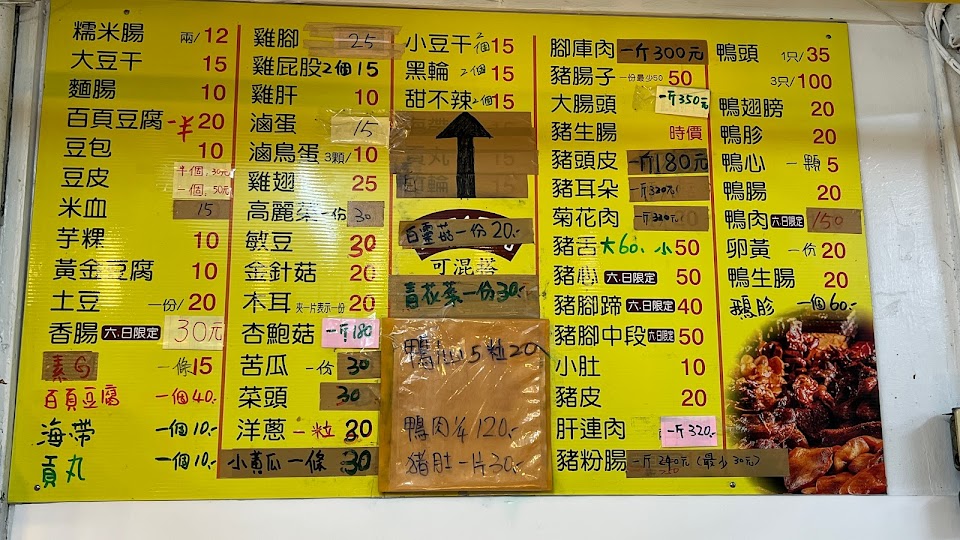 糯米腸 兩/12
大豆干 15
麵腸 10
百頁豆腐 一半 20
豆包 10
豆皮 半個.30元
一個.50元
米血 15
芋粿 10
黃金豆腐 10
土豆 一份/20
香腸 六.日限定 30元
素G 一條15
百頁豆腐 一個40.-
海帶 一個10.-
貢丸 一個10.-
雞腳 25
雞屁股2個15
雞肝 10
滷蛋 15
滷鳥蛋 3顆/10
雞翅 25
高麗菜一份 30
敏豆 30
金針菇 20
木耳 夾一片表示一份 20
杏鮑菇 一斤180
苦瓜 一份 30
菜頭 30
洋蔥 一粒 30
小黃瓜 一條 30
小豆干 2個15
黑輪 2個15
甜不辣 2個15
15
貢丸 15
輪 15
白靈菇一份20.-
可混搭
青花菜一份30.-
鴨 5粒20
鴨肉¼ 120.-
豬肚一片30.-
腳庫肉 一斤300元
豬腸子 一份最少50 50
大腸頭 一斤350元
豬生腸 時價
豬頭皮 一斤180元
豬耳朵 一斤320元
菊花肉 一斤330元
豬舌 大60. 小50
豬心 六.日限定 50
豬腳蹄 六.日限定 40
豬腳中段 六日限定 50
小肚 10
豬皮 20
肝連肉 一斤320.-
豬粉腸 一斤240元(最少30元)
鴨頭 1只/35
3只/100
鴨翅膀 20
鴨胗 20
鴨心 一顆 5
鴨腸 20
鴨肉 六.日限定 150
卵黃 一份 20
鴨生腸 20
鵝胗 一個60.-